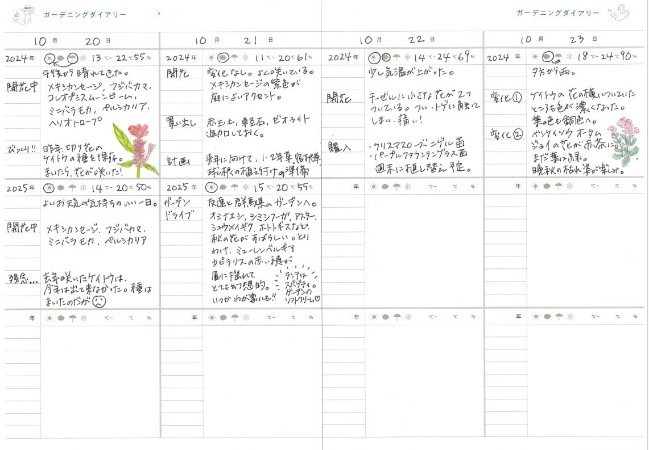 ガーデニングダイアリー
ガーデニングダイアリー
10月 20日
2024年 13℃-22℃ 55%
開花中
メキシカンセージ、フジバカマ、
コレオプシスムーンビーム、
ミニバラモカ、ペルシカリア、
ヘリオトロープ
びっくり!!
昨年、切り花の
ケイトウの種を保存。
まいたら、花が咲いた!
2025年 14℃-20℃ 50%
よいお天気で気持ちのいい一日。
開花中
メキシカンセージ、フジバカマ、
ミニバラモカ、ペルシカリア
残念...
去年咲いたケイトウは、
今年は出て来なかった。種は
まいたのだが
年 ℃-℃ %
10月 21日
2024年 11℃-20℃ 61%
開花
変化なし。よく咲いている。
メキシカンセージの紫色が
庭によいアクセント。
買い出し
赤玉土、軽石、ゼオライト
追加しておく。
計画
来年に向けて、1・2年草、宿根草
球根の植え付けの準備
2025年 15℃-20℃ 55%
ガーデン
ドライブ
友達と群馬県のガーデンへ。
オミナエシ、シミシフーガ、アスター、
シュウメイギク、ホトトギスなど、
秋の花がすばらしい。とり
わけ、ミューレンベルギア
カピラリスの赤い穂が
風に揺れて
とても幻想的。
いつかわが家にも!!
ランチは
スパゲティ。
ガーデンの
ソフトクリーム♡
年 ℃-℃ %
10月 22日
2024年 14℃-24℃ 69%
少し気温が上がった。
開花
チーゼルに小さな花が2つ
ついている。つい、トゲに触って
しまい、痛い!
購入
・クリスマスローズ ニゲル苗
・パープルファウンテングラス苗
週末に植し替え予定。
年 ℃-℃ %
年 ℃-℃ %
10月 23日
2024年 18℃-24℃ 90%
夕方から雨。
変化①
ケイトウの花の横についていた
ところも色が濃くなった。
葉の色も銅色へ。
変化②
ベンケイソウ オータム
ジョイの花が赤茶に。
まだ葉は緑。
晩秋の枯れ姿が楽しみ。
年 ℃-℃ %
年 ℃-℃ %